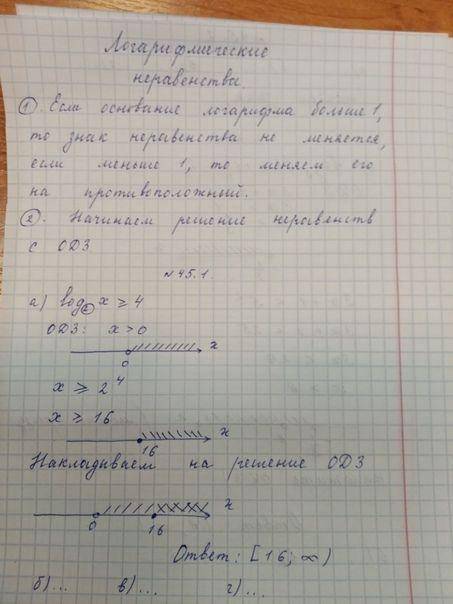 Логарифмические
неравенства.
① Если основание логарифма больше 1,
то знак неравенства не меняется,
если меньше 1, то меняем его
на противоположный.
②. Начинаем решение неравенств
с ОДЗ
№45.1.
а) log₂ x ≥ 4
ОДЗ: x > 0
x
0
x ≥ 2⁴
x ≥ 16
x
16
Накладываем на решение ОДЗ
x
0 16
Ответ: [16; ∞)
б)... в)... г)...